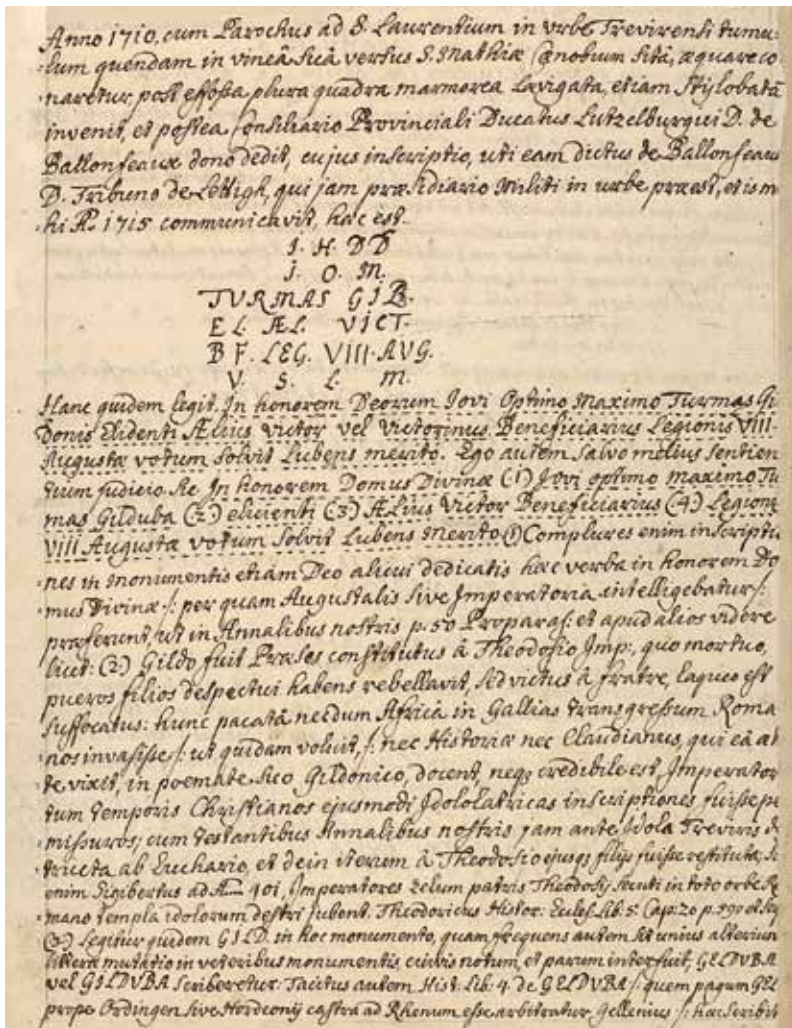 Anno 1710, cum Parochus ad S. Laurentium in urbe Trevirensi tumu-
-lum quendam in vineâ sitâ versus S. Mathiæ Cœnobium sitâ, æquare co
-naretur post effossa plura quadra marmorea lævigata, etiam Stylobatã
invenit, et postea Consiliario Provinciali Ducatus Lutzelburgui D. de
Ballonfeaux dono dedit, cujus inscriptio, uti eam dictus de Ballonfeaux
D. Tribuno de Lettigh, qui jam præsidiario Militi in urbe præest, et is m
-hi Aº. 1715 communicavit, hæc est.
I. H. DD
I. O. M.
TVRMAS GIB.
EL. ÆL. VICT.
B F. LEG. VIII. AVG.
V. S. L. M.
Hanc quidem legit. In honorem Deorum Jovi Optimo Maximo Turmas Gi
Donis Elidenti Ælius Victor vel Victorinus Beneficiarius Legionis VIII.
Augustæ votum solvit Lubens merito. Ego autem salvo melius sentien
tium judicio sic In honorem Domus Divinæ (1) Jovi optimo maximo Tu
mas Gilduba (2) elicienti (3) Ælius Victor Beneficiarius (4) Legioni
VIII Augustæ votum solvit Lubens Merito (1) Complures enim inscriptio
-nes in monumentis etiam Deo alicui dedicatis hæc verba in honorem Do
-mus Divinæ /: per quam Augustalis sive Imperatoria intelligebatur /:
præferunt, ut in Annalibus nostris p. 50 Proparas: et apud alios videre
licet: (2) Gildo fuit Præses constitutus â Theodosio Imp:, quo mortuo,
pueros filios despectui habens rebellavit, sed victus â fratre, laqueo est
suffocatus: hunc pacatâ necdum Africâ in Gallias transgressum Roma
-nos invasisse /: ut quidam volunt, /: nec Historiæ nec Claudianus, qui eâ æt
te vixit, in poemate suo Gildonico, docent, neq; credibile est, Imperator
tum temporis Christianos ejusmodi Idololatricas inscriptiones fuisse pe
missuros; cum testantibus Annalibus nostris jam ante Idola Treviris de
tructa ab Euchario, et dein iterum â Theodosio ejusq; filijs fuisse restituta; si
enim Sigibertus ad Aº 401, Imperatores zelum patris Theodosij secuti in toto orbe Ro
mano templa idolorum destrui jubent. Theodoricus Histor: Eccles. Lib: 5. Cap: 20 p. 390 et seq
(3) Legitur quidem GILD. in hoc monumento, quam frequens autem sit unius alterius
litteræ mutatio in veteribus monumentis, cuivis notum, et parum interfuit, GELDVBA
vel GILDVBA scriberetur. Tacitus autem Hist: Lib: 4 de GELDVBA /: quem pagum GEL
prope Ordingen sive Hordeonij castra ad Rhenum esse arbitratur Gellenius /: hæc scribit